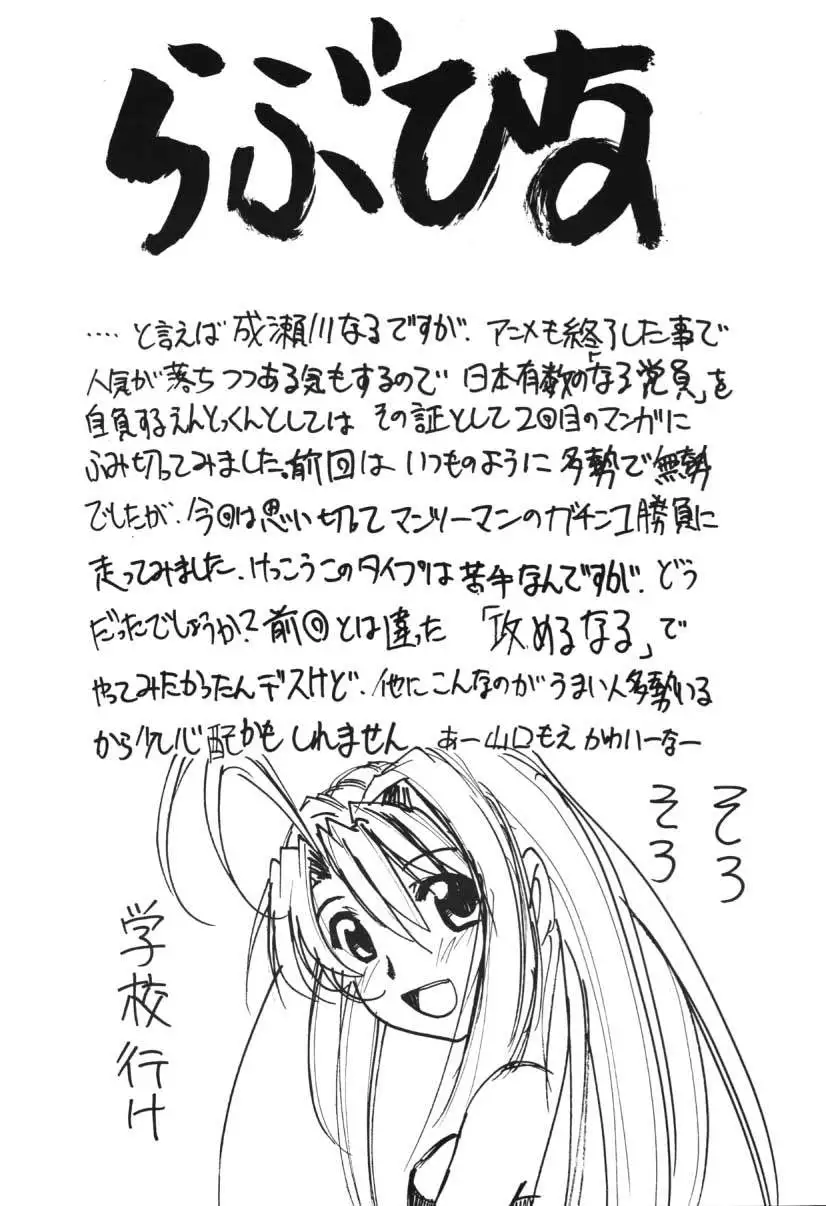 らぶひな
‥‥と言えば成瀬川なるですが、アニメも終了した事で
人気が落ちつつある気もするので日本有数の「なる党員」を
自負するえんとっくんとしてはその証として2回目のマンガに
ふみ切ってみました。前回はいつものように多勢で無勢
でしたが、今回は思い切ってマンツーマンのガチンコ勝負に
走ってみました、けっこうこのタイプは苦手なんですが、どう
だったでしょうか?前回とは違った「攻めるなる」で
やってみたかったんデスけど、他にこんなのがうまい人多勢いる
から少し心配かもしれません あー山口もえかわいーなー
そろ
そろ
学校行け